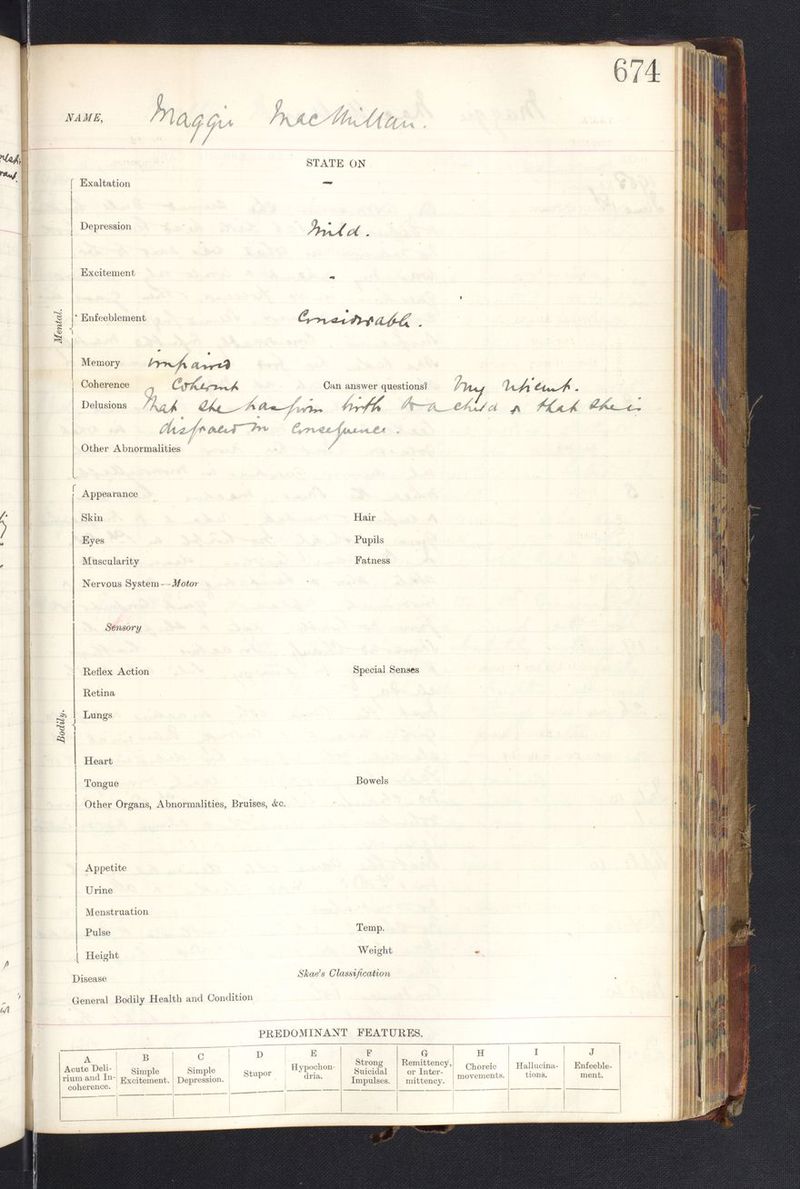 674
NAME, Maggie MacMillan.
STATE ON
Exaltation –
Depression Mild.
Excitement –
Mental.
Enfeeblement Considerable.
Memory impaired
Coherence Coherent Can answer questions? Very reticent.
Delusions That she has given birth to a child & that she is
disgraced in consequence.
Other Abnormalities
Appearance
Skin Hair
Eyes Pupils
Muscularity Fatness
Nervous System—Motor
Sensory
Reflex Action Special Senses
Retina
Bodily.
Lungs
Heart
Tongue Bowels
Other Organs, Abnormalities, Bruises, &c.
Appetite
Urine
Menstruation
Pulse Temp.
Height Weight
Disease Skae's Classification
General Bodily Health and Condition
PREDOMINANT FEATURES.
A B C D E F G H I J
Acute Deli-
rium and In-
coherence.
Simple
Excitement.
Simple
Depression.
Stupor
Hypochon-
dria.
Strong
Suicidal
Impulses.
Remittency,
or Inter-
mittency.
Choreic
movements.
Hallucina-
tions.
Enfeeble-
ment.